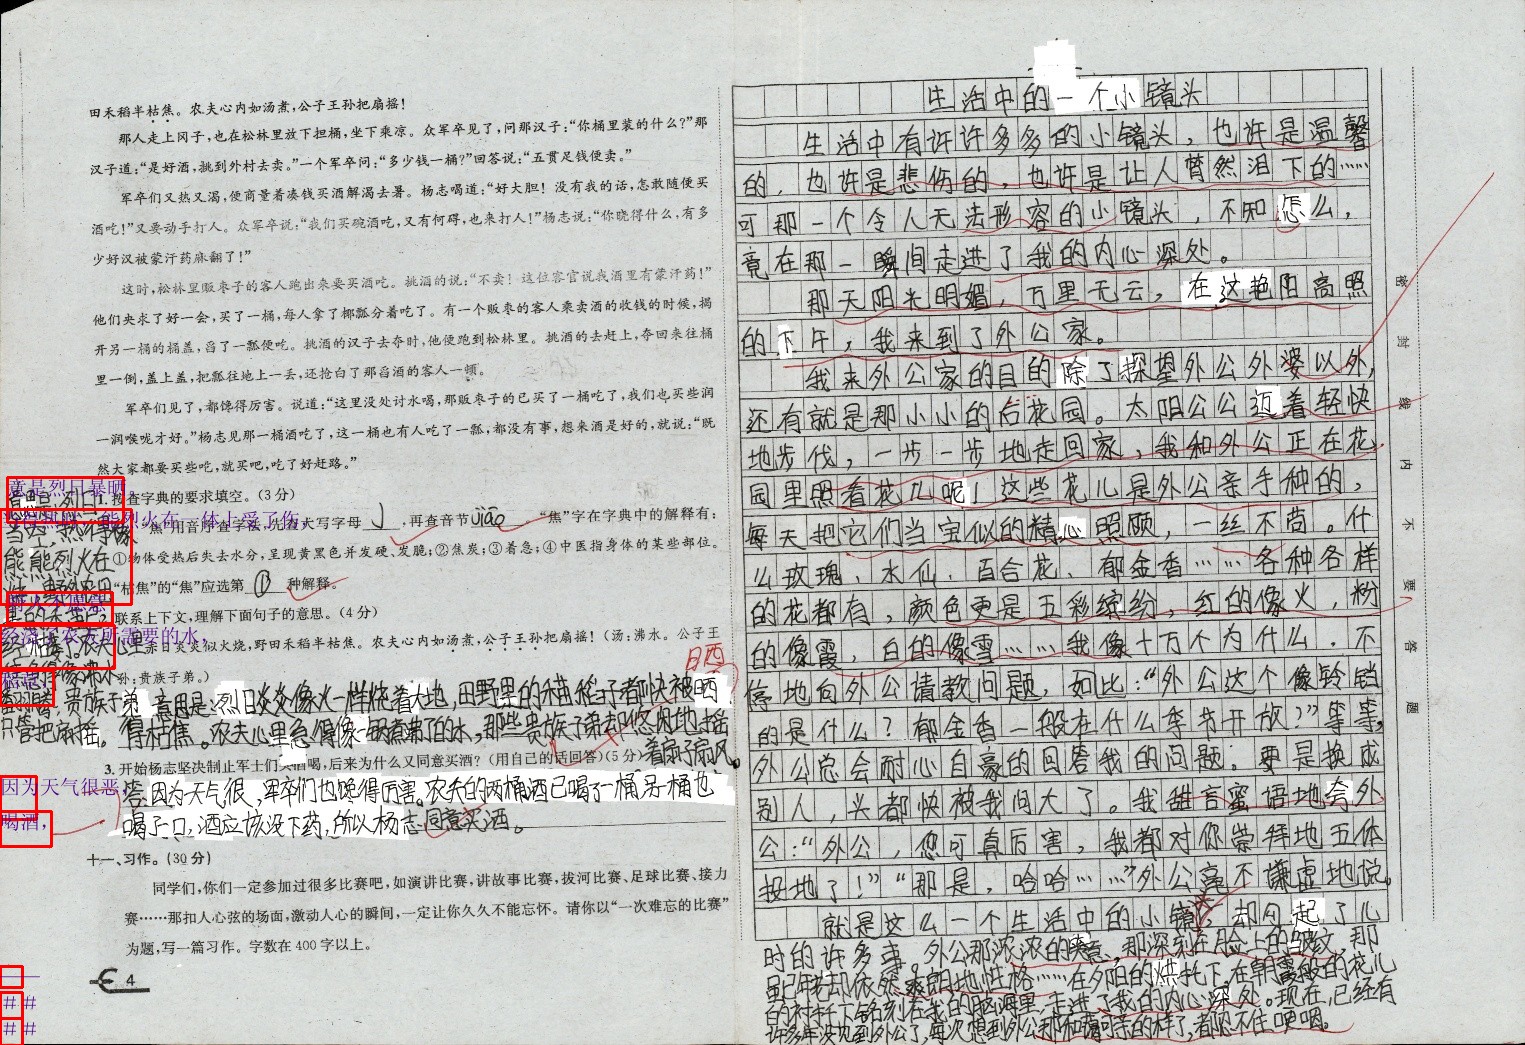 田禾稻半枯焦。农夫心内如汤煮,公子王孙把扇摇!
那人走上冈子,也在松林里放下担桶,坐下乘凉。众军卒见了,问那汉子:“你桶里装的什么?”那
汉子道:“是好酒,挑到外村去卖。”一个军卒问:“多少钱一桶?”回答说:“五贯足钱便卖。”
军卒们又热又渴,便商量着凑钱买酒解渴去暑。杨志喝道:“好大胆! 没有我的话,怎敢随便买
酒吃!”又要动手打人。众军卒说:“我们买碗酒吃,又有何碍,也来打人!”杨志说:“你晓得什么,有多
少好汉被蒙汗药麻翻了!”
这时,松林里贩枣子的客人跑出来要买酒吃。挑酒的说:“不卖! 这位客官说我酒里有蒙汗药!”
他们央求了好一会,买了一桶,每人拿了椰瓢分着吃了。有一个贩枣的客人乘卖酒的收钱的时候,揭
开另一桶的桶盖,舀了一瓢便吃。挑酒的汉子去夺时,他便跑到松林里。挑酒的去赶上,夺回来往桶
里一倒,盖上盖,把瓢往地上一丢,还抢白了那舀酒的客人一顿。
军卒们见了,都馋得厉害。说道:“这里没处讨水喝,那贩枣子的已买了一桶吃了,我们也买些润
一润喉咙才好。”杨志见那一桶酒吃了,这一桶也有人吃了一瓢,都没有事,想来酒是好的,就说:“既
然大家都要买些吃,就买吧,吃了好赶路。”
意是烈日暴晒
1. 按查字典的要求填空。(3 分)
“焦”用音序查字法,先查大写字母 J ,再查音节 jiāo 。“焦”字在字典中的解释有:
①物体受热后失去水分,呈现黄黑色并发硬、发脆;②焦炭;③着急;④中医指身体的某些部位。
“枯焦”的“焦”应选第 ① 种解释。
联系上下文,理解下面句子的意思。(4 分)
赤日炎炎似火烧,野田禾稻半枯焦。农夫心内如汤煮,公子王孙把扇摇!(汤:沸水。公子王
孙:贵族子弟。)
晒
意思是:烈日炎炎像火一样烧着大地,田野里的稻子都快被晒
得枯焦。农夫心里急得像一锅煮沸了的水,那些贵族子弟却悠闲地摇
着扇子扇风。
只管把扇摇。
3. 开始杨志坚决制止军士们买酒喝,后来为什么又同意买酒?(用自己的话回答)(5 分)
因为天气很恶,
答:因为天气很,军卒们也馋得厉害。农夫的两桶酒已喝了一桶,另一桶也
喝酒,
喝了一口,酒应该没下药,所以杨志同意买酒。
十一、习作。(30 分)
同学们,你们一定参加过很多比赛吧,如演讲比赛,讲故事比赛,拔河比赛、足球比赛、接力
赛……那扣人心弦的场面,激动人心的瞬间,一定让你久久不能忘怀。请你以“一次难忘的比赛”
为题,写一篇习作。字数在 400 字以上。
4
##
##
生活中的一个小镜头
生活中有许许多多的小镜头,也许是温馨
的,也许是悲伤的,也许是让人潸然泪下的……
可那一个令人无法形容的小镜头,不知怎么,
竟在那一瞬间走进了我的内心深处。
那天阳光明媚,万里无云,在这艳阳高照
的下午,我来到了外公家。
我来外公家的目的除了探望外公外婆以外,
还有就是那小小的后花园。太阳公公迈着轻快
地步伐,一步一步地走回家,我和外公正在花
园里照看花儿呢!这些花儿是外公亲手种的,
每天把它们当宝似的精心照顾,一丝不苟。什
么玫瑰、水仙、百合花、郁金香……各种各样
的花都有,颜色更是五彩缤纷,红的像火,粉
的像霞,白的像雪……我像十万个为什么,不
停地向外公请教问题,如比:“外公这个像铃铛
的是什么?郁金香一般在什么季节开放?”等等,
外公总会耐心自豪的回答我的问题;要是换成
别人,头都快被我问大了。我甜言蜜语地会外
公:“外公,您可真厉害,我都对你崇拜地五体
投地了!”“那是,哈哈……”外公毫不谦虚地说。
就是这么一个生活中的小镜头,却勾起了儿
时的许多事,外公那浓浓的笑意,那深刻在脸上的皱纹,那
虽已年老却依然爽朗地性格……在夕阳的烘托下,在朝霞般的花儿
的衬托下,铭刻在我的脑海里,走进了我的内心深处。现在,已经有
许多年没见到外公了,每次想到外公那和蔼可亲的样子,都忍不住哽咽。
密封线内不要答题